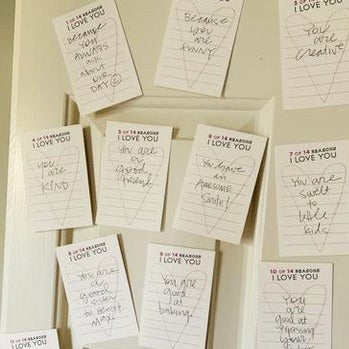 I LOVE YOU
Because
you
ALWAYS
ask
about our
DAY
I LOVE YOU
Because
you
are
FUNNY
3 OF 14 REASONS
I LOVE YOU
You are
creative
4 OF 14 REASONS
I LOVE YOU
you are
KIND
5 OF 14 REASONS
I LOVE YOU
You are
a
good
friend
6 OF 14 REASONS
I LOVE YOU
You have
an
AWESOME
Smile!
7 OF 14 REASONS
I LOVE YOU
You are
sweet
to
little
kids
8 OF 14 REASONS
I LOVE YOU
You are
a
good
sister
to Benji
Max
9 OF 14 REASONS
I LOVE YOU
You are
good
at
baking
10 OF 14 REASONS
I LOVE YOU
You
are
good at
expressing
your
11 OF 14 REASONS
I LOVE YOU